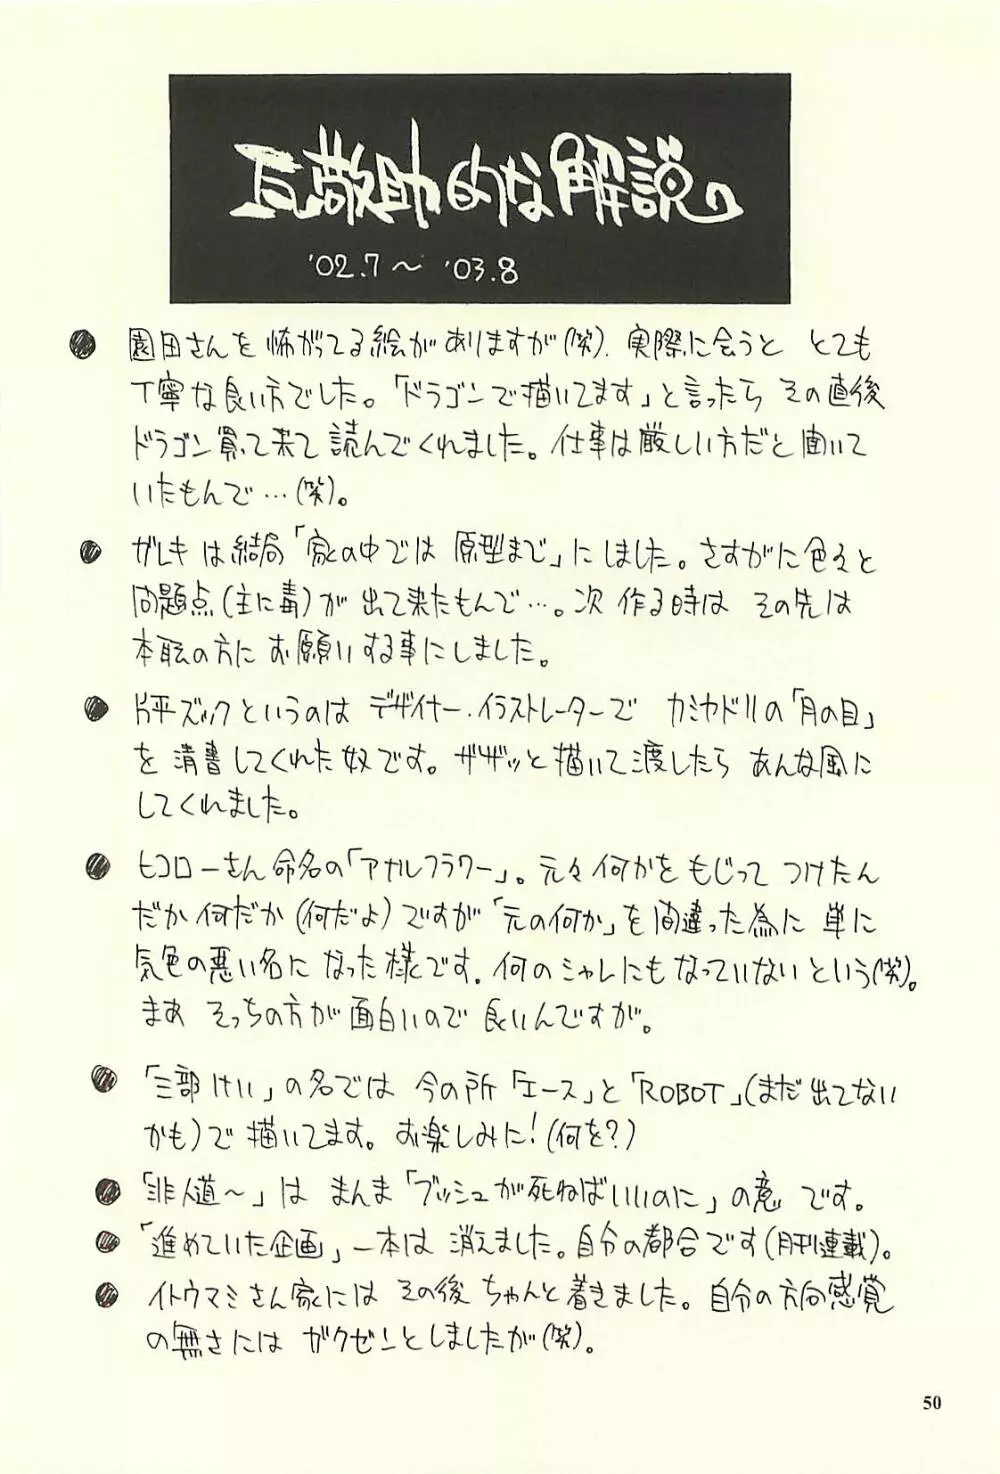 瓦敬助的な解説。
'02.7〜'03.8
● 園田さんを怖がってる絵がありますが(笑)、実際に会うと とても
丁寧な良い方でした。「ドラゴンで描いてます」と言ったら その直後
ドラゴン買って来て 読んでくれました。仕事は厳しい方だと聞いて
いたもんで…(笑)。
● ガレキは結局「家の中では 原型まで」にしました。さすがに色々と
問題点(主に毒)が 出て来たもんで…。次 作る時は その先は
本職の方に お願いする事にしました。
● 片平ズックというのは デザイナー・イラストレーターで カミヤドリの「月の目」
を 清書してくれた奴です。ザザッと描いて渡したら あんな風に
してくれました。
● ヒコローさん命名の「アナルフラワー」。元々何かを もじって つけたん
だか何だか(何だよ)ですが「元の何か」を間違った為に 単に
気色の悪い名に なった様です。何のシャレにもなっていないという(笑)。
まあ そっちの方が面白いので 良いんですが。
● 「三部けい」の名では 今の所「エース」と「ROBOT」(まだ出てない
かも)で 描いてます。お楽しみに!(何を?)
● 「非人道〜」は まんま「ブッシュが死ねばいいのに」の意 です。
● 「進めていた企画」一本は 消えました。自分の都合です(月刊連載)。
● イトウマミさん家には その後 ちゃんと着きました。自分の方向感覚
の無さには ガクゼンとしましたが(笑)。
50